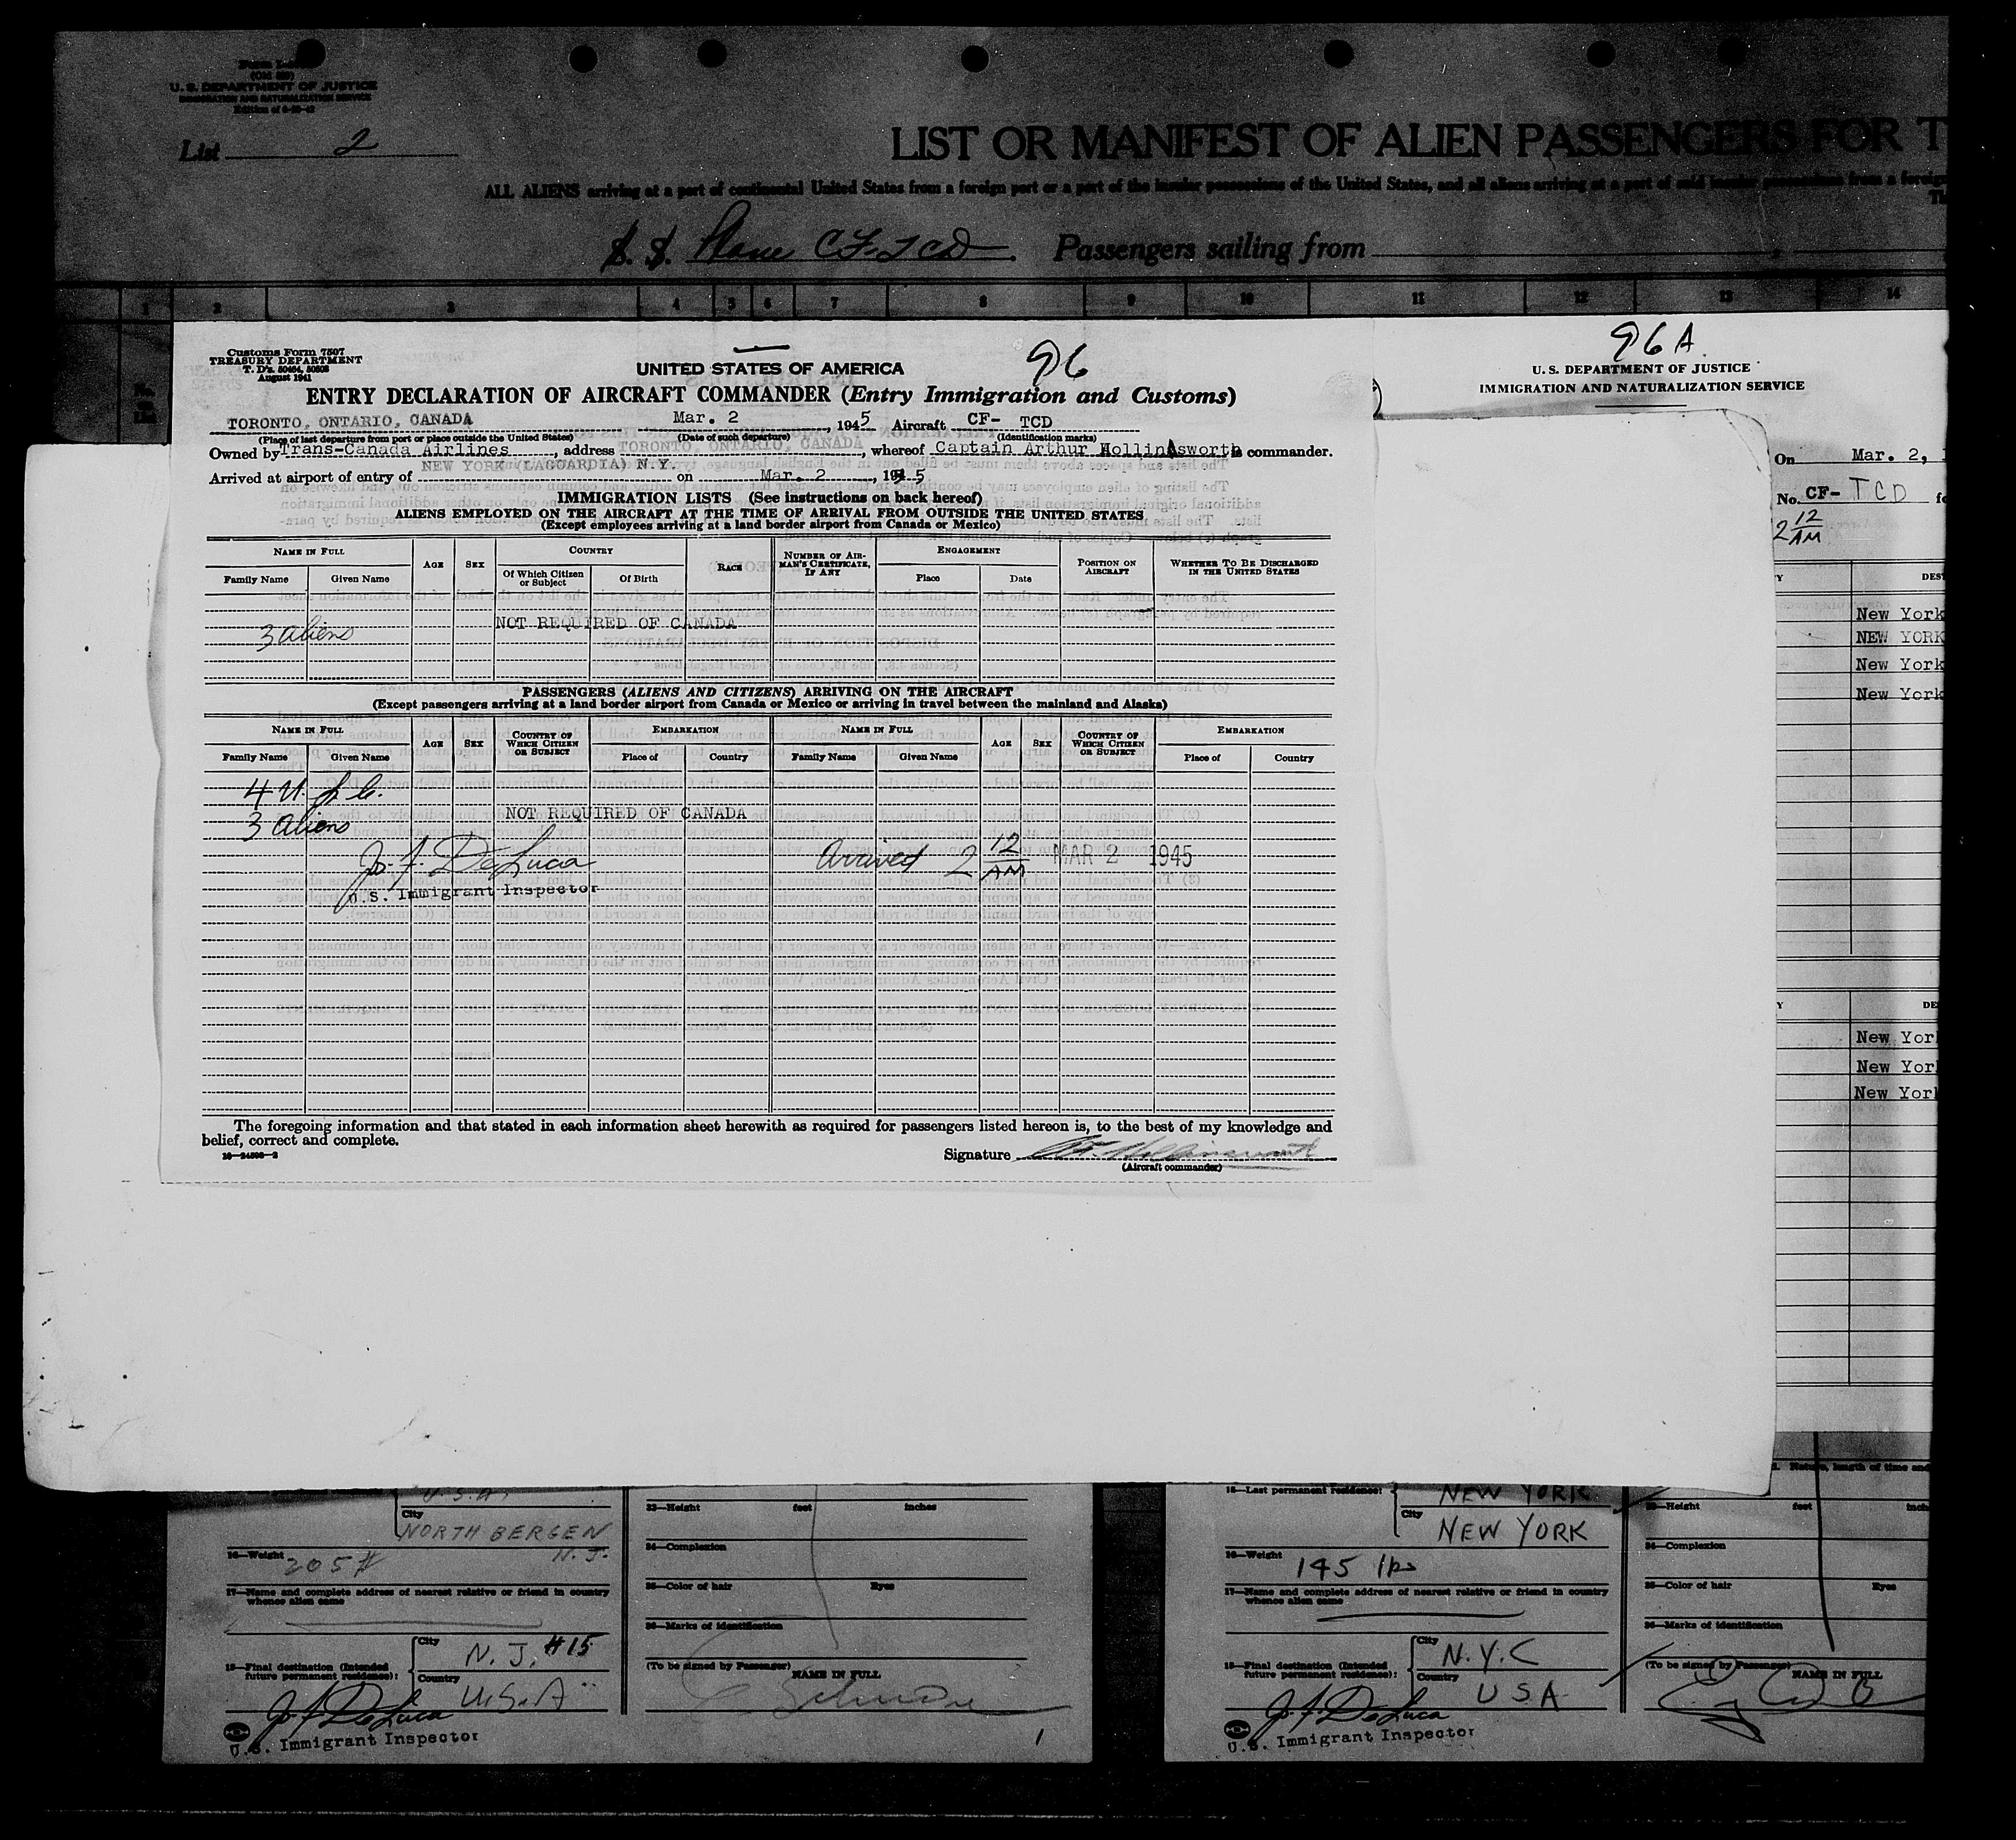 U. S. DEPARTMENT OF JUSTICE
IMMIGRATION AND NATURALIZATION SERVICE
List 2
LIST OR MANIFEST OF ALIEN PASSENGERS FOR T
ALL ALIENS arriving at a port of continental United States from a foreign port or a port of the insular possessions of the United States, and all aliens arriving at a port of said insular possessions from a foreign
S. S. Plane CF-TCD Passengers sailing from
1 2 3 4 5 6 7 8 9 10 11 12 13 14
Customs Form 7507
TREASURY DEPARTMENT
T. D's. 50464, 50503
August 1941
UNITED STATES OF AMERICA
96
ENTRY DECLARATION OF AIRCRAFT COMMANDER (Entry Immigration and Customs)
TORONTO, ONTARIO, CANADA Mar. 2, 1945 Aircraft CF- TCD
(Place of last departure from port or place outside the United States) (Date of such departure) (Identification marks)
Owned by Trans-Canada Airlines, address TORONTO, ONTARIO, CANADA, whereof Captain Arthur Hollinsworth is commander.
Arrived at airport of entry of NEW YORK (LAGUARDIA) N.Y. on Mar. 2, 1945
IMMIGRATION LISTS (See instructions on back hereof)
ALIENS EMPLOYED ON THE AIRCRAFT AT THE TIME OF ARRIVAL FROM OUTSIDE THE UNITED STATES
(Except employees arriving at a land border airport from Canada or Mexico)
NAME IN FULL AGE SEX COUNTRY RACE NUMBER OF AIRMAN'S CERTIFICATE, IF ANY ENGAGEMENT POSITION ON AIRCRAFT WHETHER TO BE DISCHARGED IN THE UNITED STATES
Family Name Given Name Of Which Citizen or Subject Of Birth Place Date
NOT REQUIRED OF CANADA
3 aliens
PASSENGERS (ALIENS AND CITIZENS) ARRIVING ON THE AIRCRAFT
(Except passengers arriving at a land border airport from Canada or Mexico or arriving in travel between the mainland and Alaska)
NAME IN FULL AGE SEX COUNTRY OF WHICH CITIZEN OR SUBJECT EMBARKATION NAME IN FULL AGE SEX COUNTRY OF WHICH CITIZEN OR SUBJECT EMBARKATION
Family Name Given Name Place of Country Family Name Given Name Place of Country
4 U. S. C.
NOT REQUIRED OF CANADA
3 aliens
J. F. DeLuca Arrived 2 12/AM MAR 2 1945
U.S. Immigrant Inspector
The foregoing information and that stated in each information sheet herewith as required for passengers listed hereon is, to the best of my knowledge and
belief, correct and complete.
16-24598-2
Signature
(Aircraft commander)
96A
U. S. DEPARTMENT OF JUSTICE
IMMIGRATION AND NATURALIZATION SERVICE
On Mar. 2, 1
No. CF- TCD
2 12/AM
Y DES
New York
NEW YORK
New York
New York
Y DE
New Yor
New Yor
New Yor
U.S.A.
City
NORTH BERGEN
N. J.
16—Weight 205#
17—Name and complete address of nearest relative or friend in country
whence alien came
18—Final destination (Intended future permanent residence): City N. J. #15
Country U.S.A
J. F. DeLuca
U.S. Immigrant Inspector
23—Height feet inches
24—Complexion
25—Color of hair Eyes
26—Marks of identification
(To be signed by Passenger) NAME IN FULL
1
15—Last permanent residence: NEW YORK
City NEW YORK
16—Weight 145 lbs
17—Name and complete address of nearest relative or friend in country
whence alien came
18—Final destination (Intended future permanent residence): City N.Y.C
Country USA
J. F. DeLuca
U.S. Immigrant Inspector
Nature, length of time and
23—Height feet inch
24—Complexion
25—Color of hair Eyes
26—Marks of identification
(To be signed by Passenger) NAME IN FULL